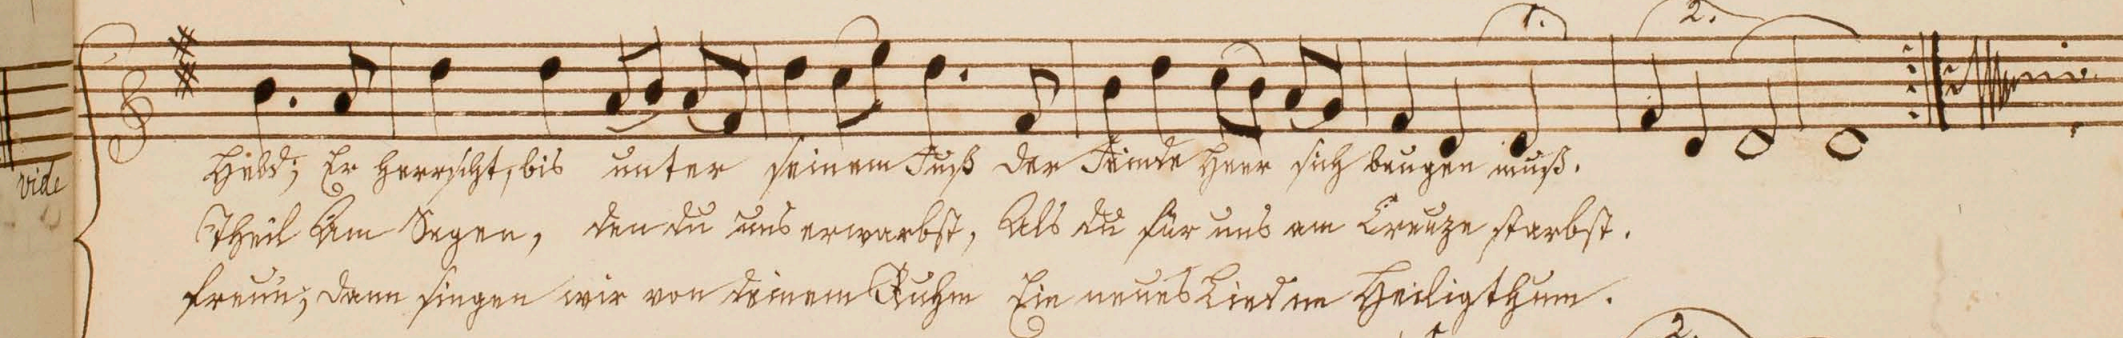 1. 2.
vide
Held; Er herrscht, bis unter seinem Fuß der Feinde Heer sich beugen muß.
Theil Am Segen, den du uns erwarbst, Als du für uns am Creuze starbst.
freun; dann singen wir von deinem Ruhm Ein neues Lied im Heiligthum.
2.